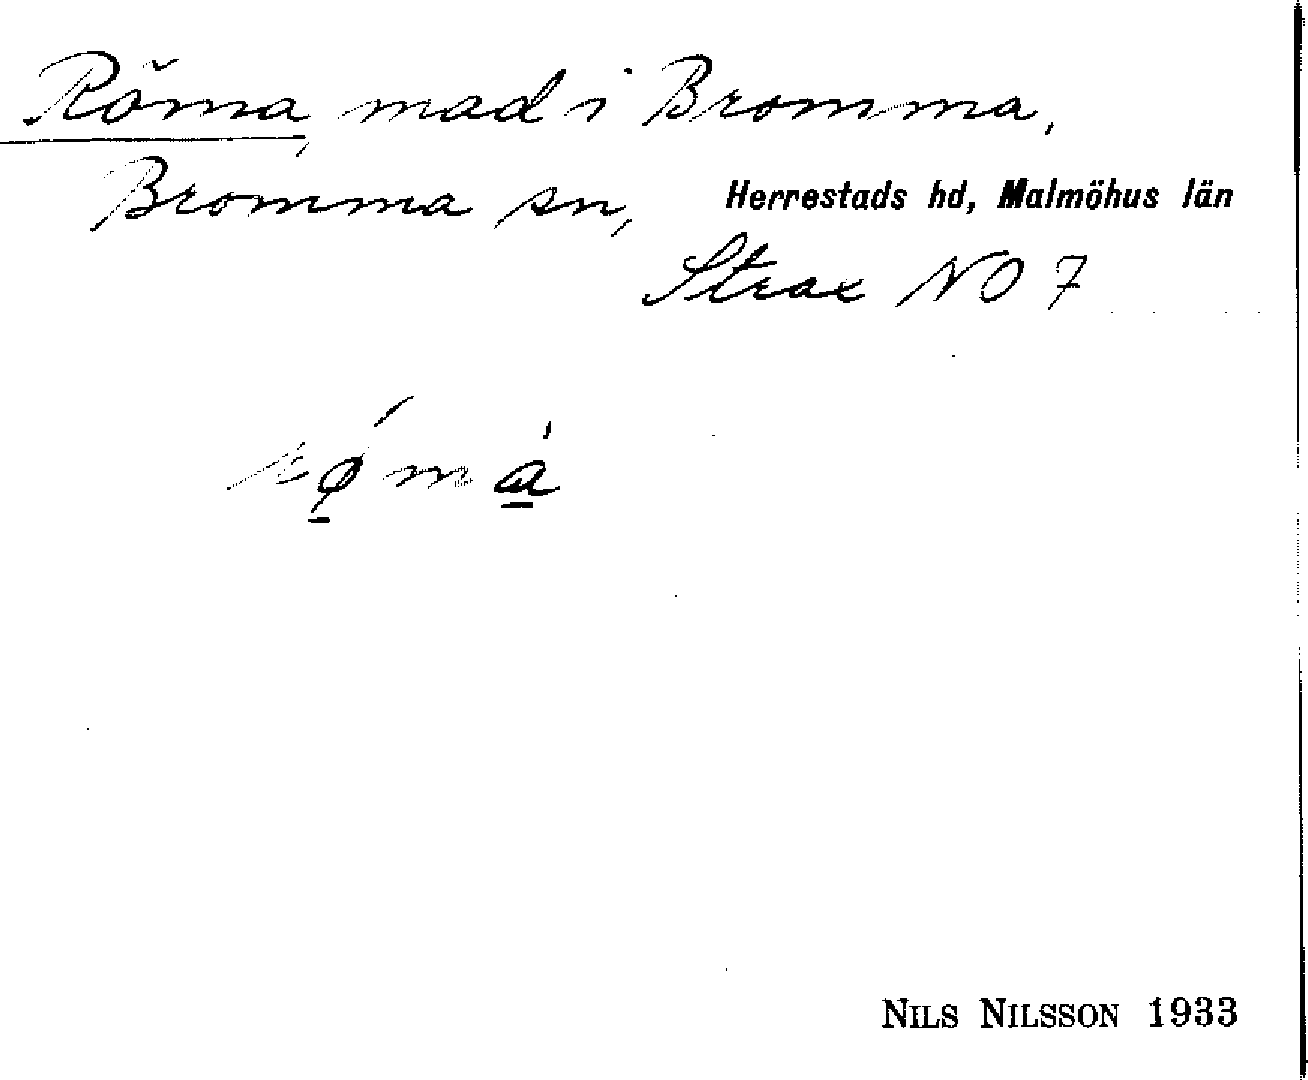 Röma, mad i Bromma,
Bromma sn, Herrestads hd, Malmöhus län
Strax NO 7
rǿ̱ma̱̍
NILS NILSSON 1933